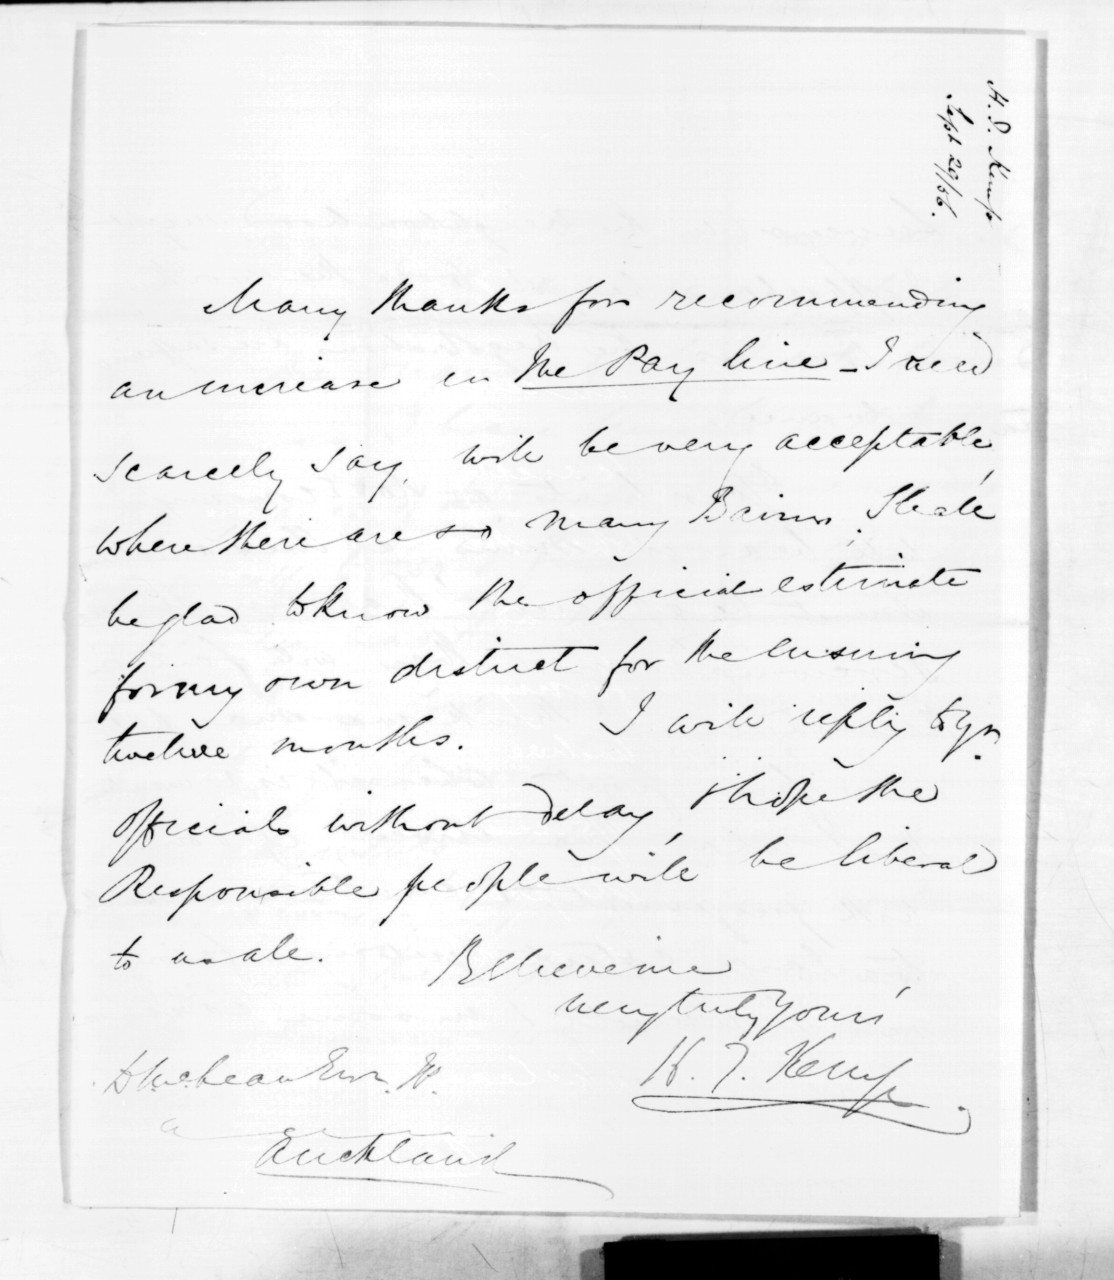 H. T. Kemp
Sept 20/56.
Many thanks for recommending
an increase in the Pay line - I need
scarcely say, will be very acceptable
where there are so many Bairns. I shall
be glad to know the official estimate
for my own district for the ensuing
twelve months. I will reply to yr.
officials without delay, & hope the
Responsible people will be liberal
to us all. Believe me
very truly yours
H. T. Kemp
D McLean Esqr.
Auckland